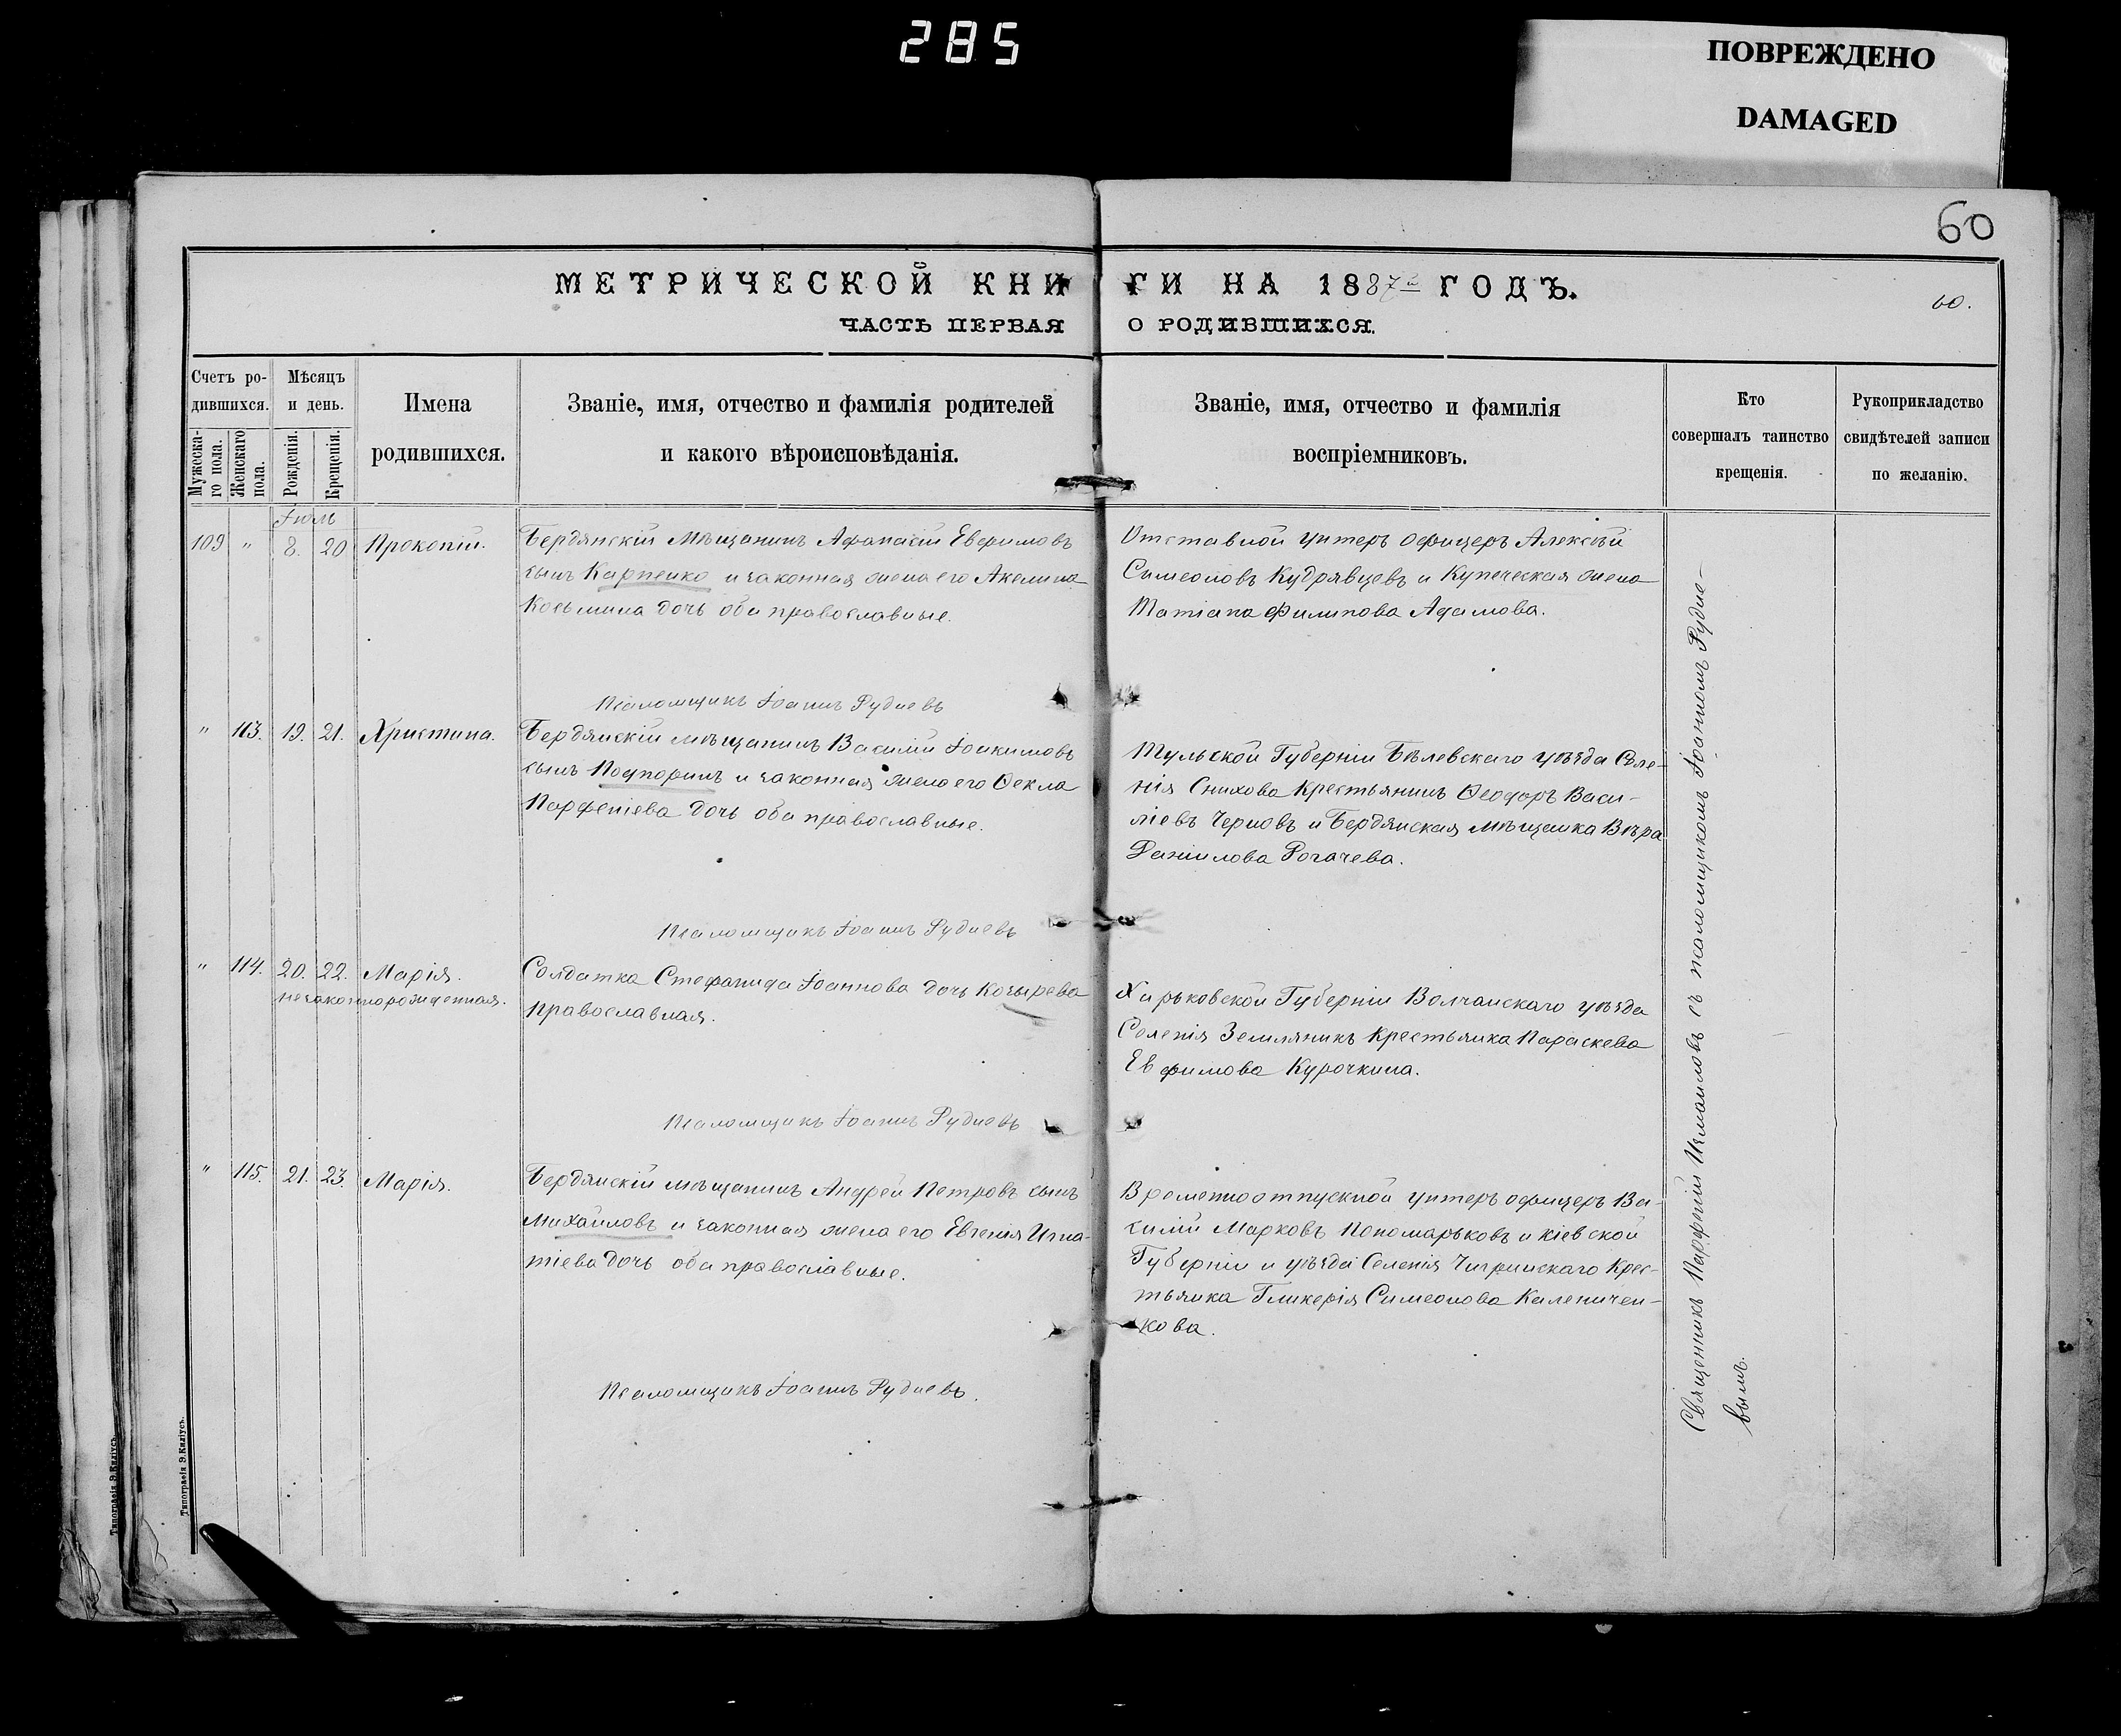 285
ПОВРЕЖДЕНО
DAMAGED
60
МЕТРИЧЕСКОЙ КНИГИ НА 1887й ГОДЪ.
60.
ЧАСТЬ ПЕРВАЯ О РОДИВШИХСЯ.
Счетъ ро-
дившихся.
Мужеска-
го пола.
Женскаго
пола.
Мѣсяцъ
и день.
Рожденія.
Крещенія.
Имена
родившихся.
Званіе, имя, отчество и фамилія родителей
и какого вѣроисповѣданія.
Званіе, имя, отчество и фамилія
воспріемниковъ.
Кто
совершалъ таинство
крещенія.
Рукоприкладство
свидѣтелей записи
по желанію.
Іюль
109 " 8. 20 Прокопій.
Бердянскій Мѣщанинъ Афанасій Евфимовъ
сынъ Карпенко и законная жена его Акелина
Козьмина дочь оба православные.
Отставной унтеръ офицеръ Алексѣй
Симеоновъ Кудрявцевъ и Купеческая жена
Татіана Филипова Адамова.
Псаломщикъ Іоаннъ Рудневъ
" 113. 19. 21. Христина.
Бердянскій мѣщанинъ Василій Іоакимовъ
сынъ Подпоринъ и законная жена его Ѳекла
Парфеніева дочь оба православные.
Тульской Губерніи Бѣлевскаго уѣзда Селе-
нія Снихова Крестьянинъ Ѳеодоръ Васи-
ліевъ Черновъ и Бердянская мѣщанка Вѣра
Даніилова Рогачева.
Псаломщикъ Іоаннъ Рудневъ
" 114. 20. 22. Марія.
незаконнорожденная.
Солдатка Стефанида Іоаннова дочь Козырева
православная.
Харьковской Губерніи Волчанскаго уѣзда
Селенія Земляникъ Крестьянка Параскева
Евфимова Курочкина.
Псаломщикъ Іоаннъ Рудневъ
" 115. 21. 23. Марія.
Бердянскій мѣщанинъ Андрей Петровъ сынъ
Михайловъ и законная жена его Евгенія Игна-
тіева дочь оба православные.
Временноотпускной унтеръ офицеръ Ва-
силій Марковъ Пономарьковъ и Кіевской
Губерніи и уѣзда Селенія Чигринскаго Крес-
тьянка Гликерія Симеонова Каленичен-
кова.
Псаломщикъ Іоаннъ Рудневъ.
Священникъ Парфеній Измаиловъ съ псаломщикомъ Іоанномъ Рудне-
вымъ.
Типографія Э.Киліусъ.
Типографія Э.Киліусъ.